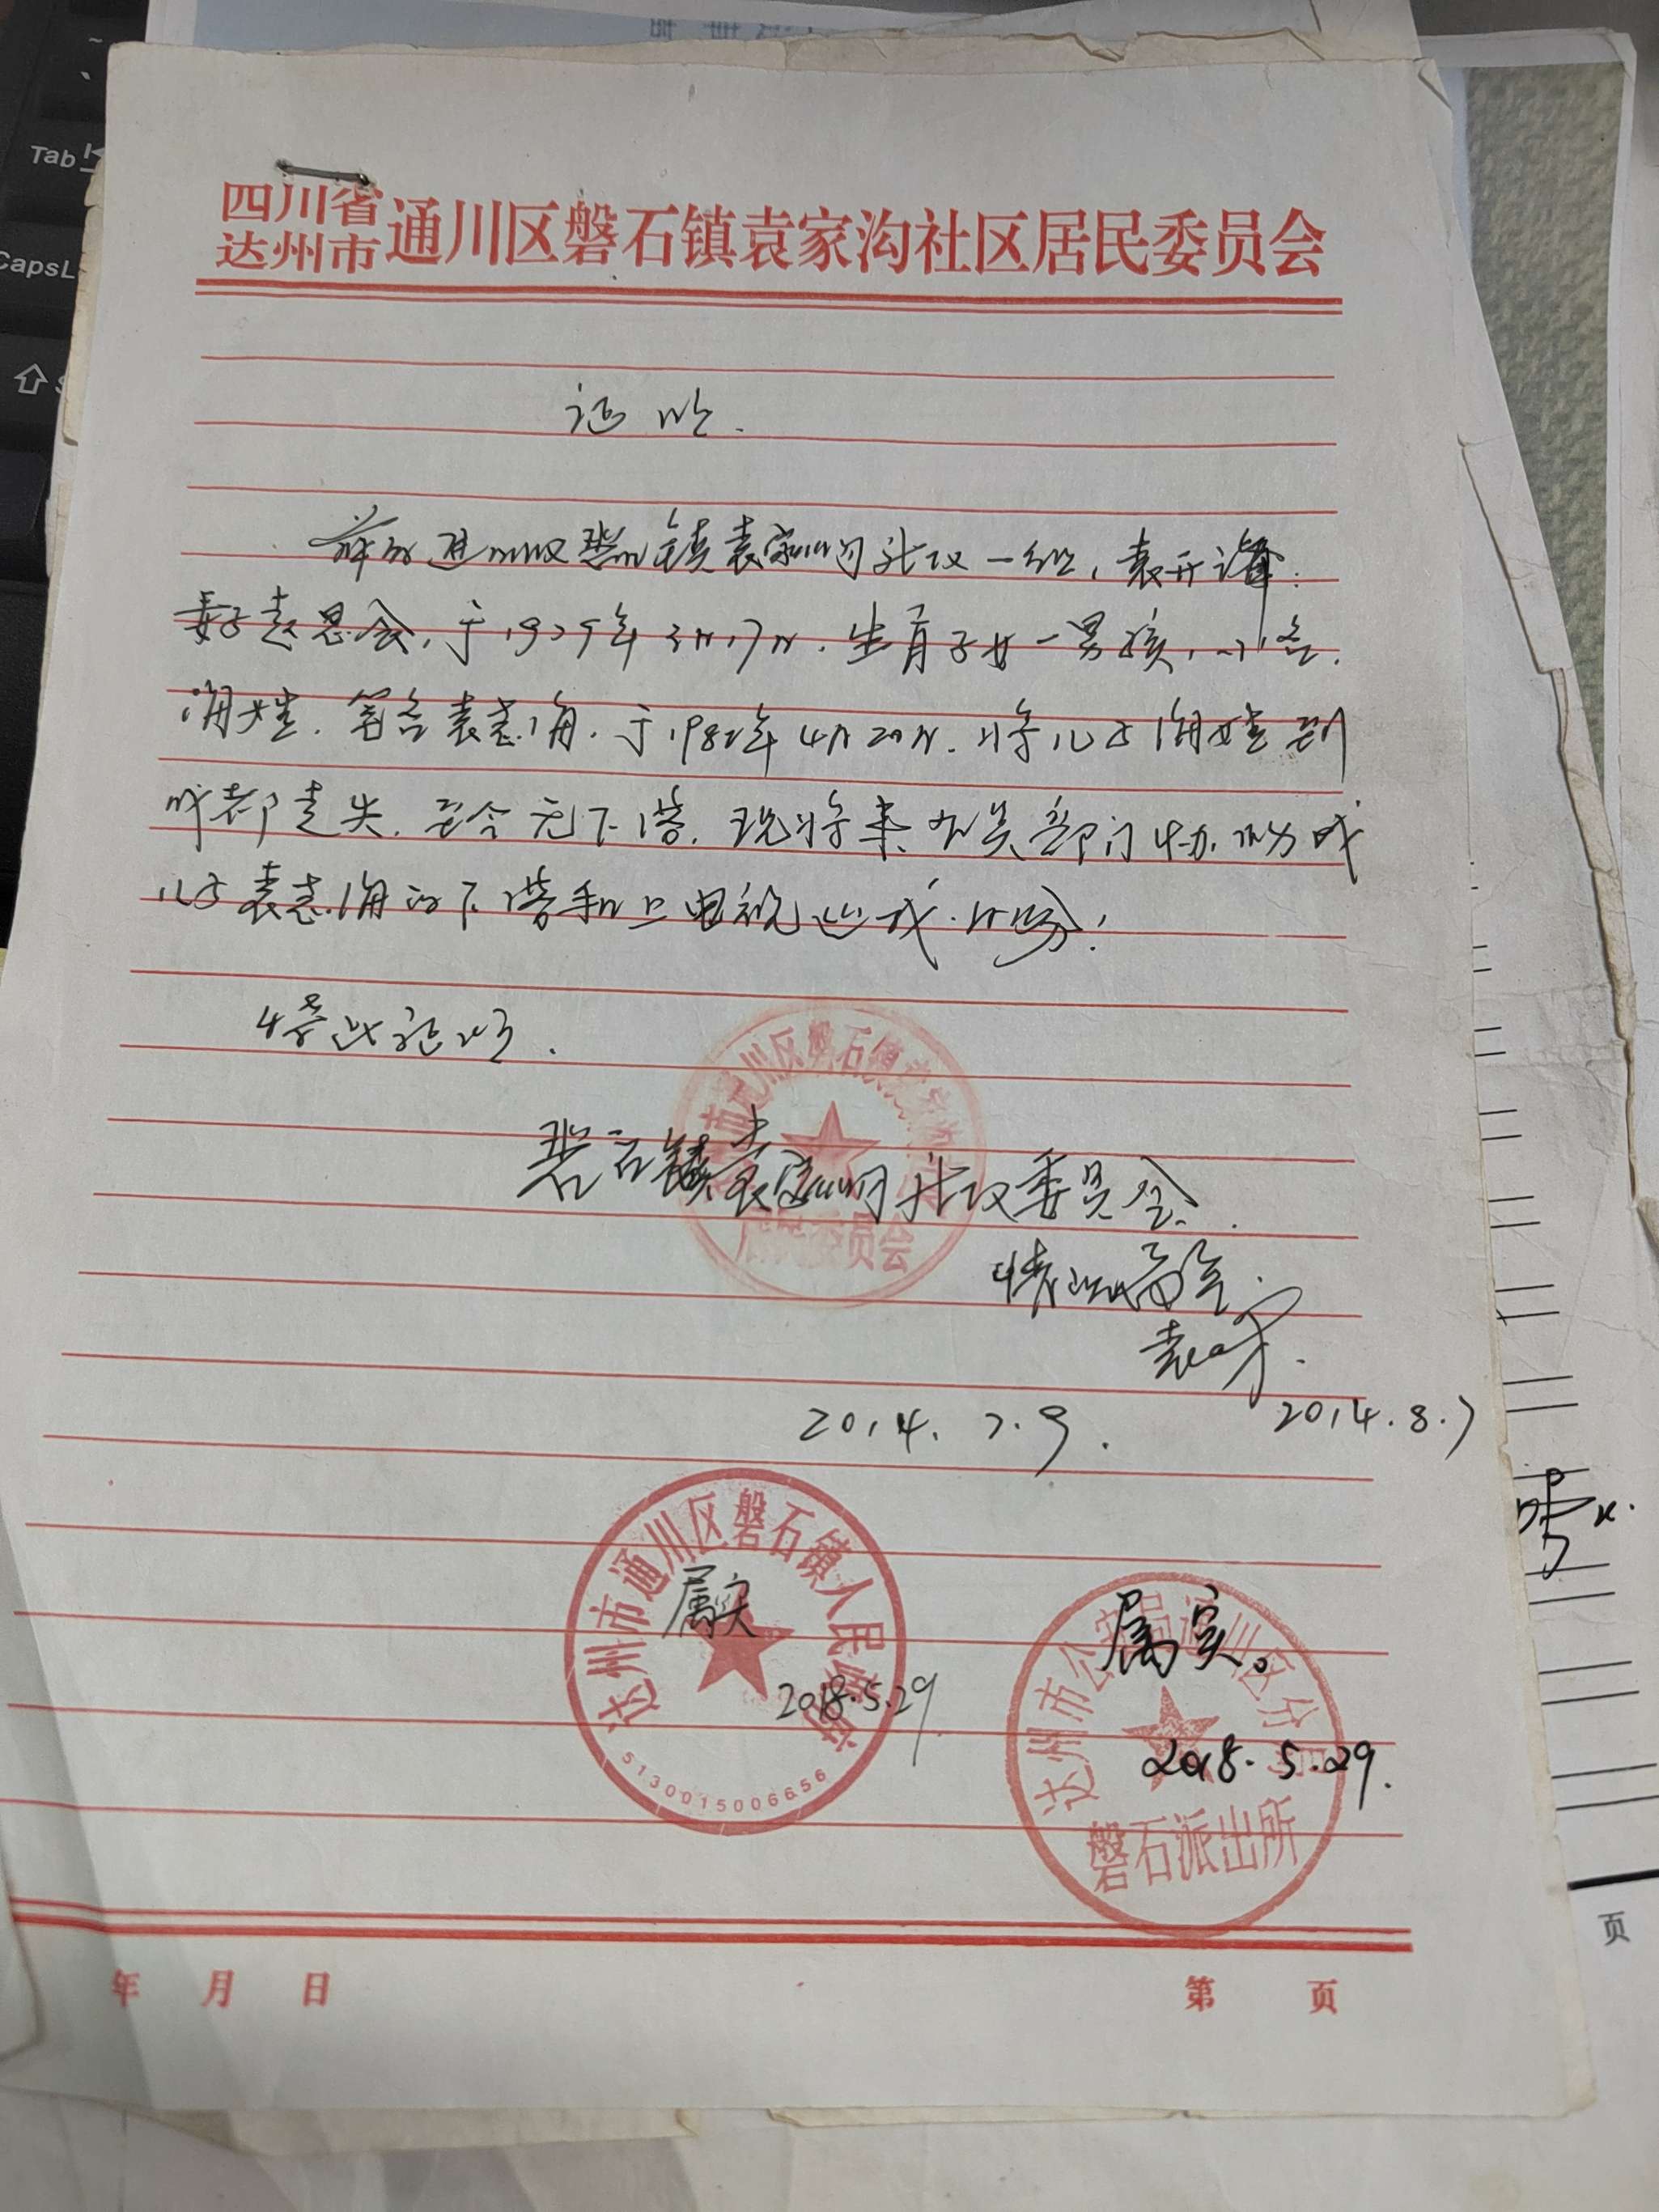 四川省
达州市
通川区磐石镇袁家沟社区居民委员会
证明.
通川区磐石镇袁家沟社区一组, 袁开
妻子赵思会, 于1979年3月17日. 生育子女一男孩, 小名.
海娃. 官名袁志海. 于1982年4月20日. 将儿子海娃到
成都走失. 至今无下落. 现将来有关部门协助我
儿子袁志海的下落和上电视
特此证明.
达州市通川区磐石镇袁家沟
居民委员会
磐石镇袁家沟社区委员会.
情况属实.
袁
2014.7.9. 2014.8.7
达州市通川区磐石镇人民政府
属实
2018.5.29
5130015006656
达州市公安局通川区分局
属实。
2018.5.29.
磐石派出所
年 月 日 第 页
页
Tab
CapsL